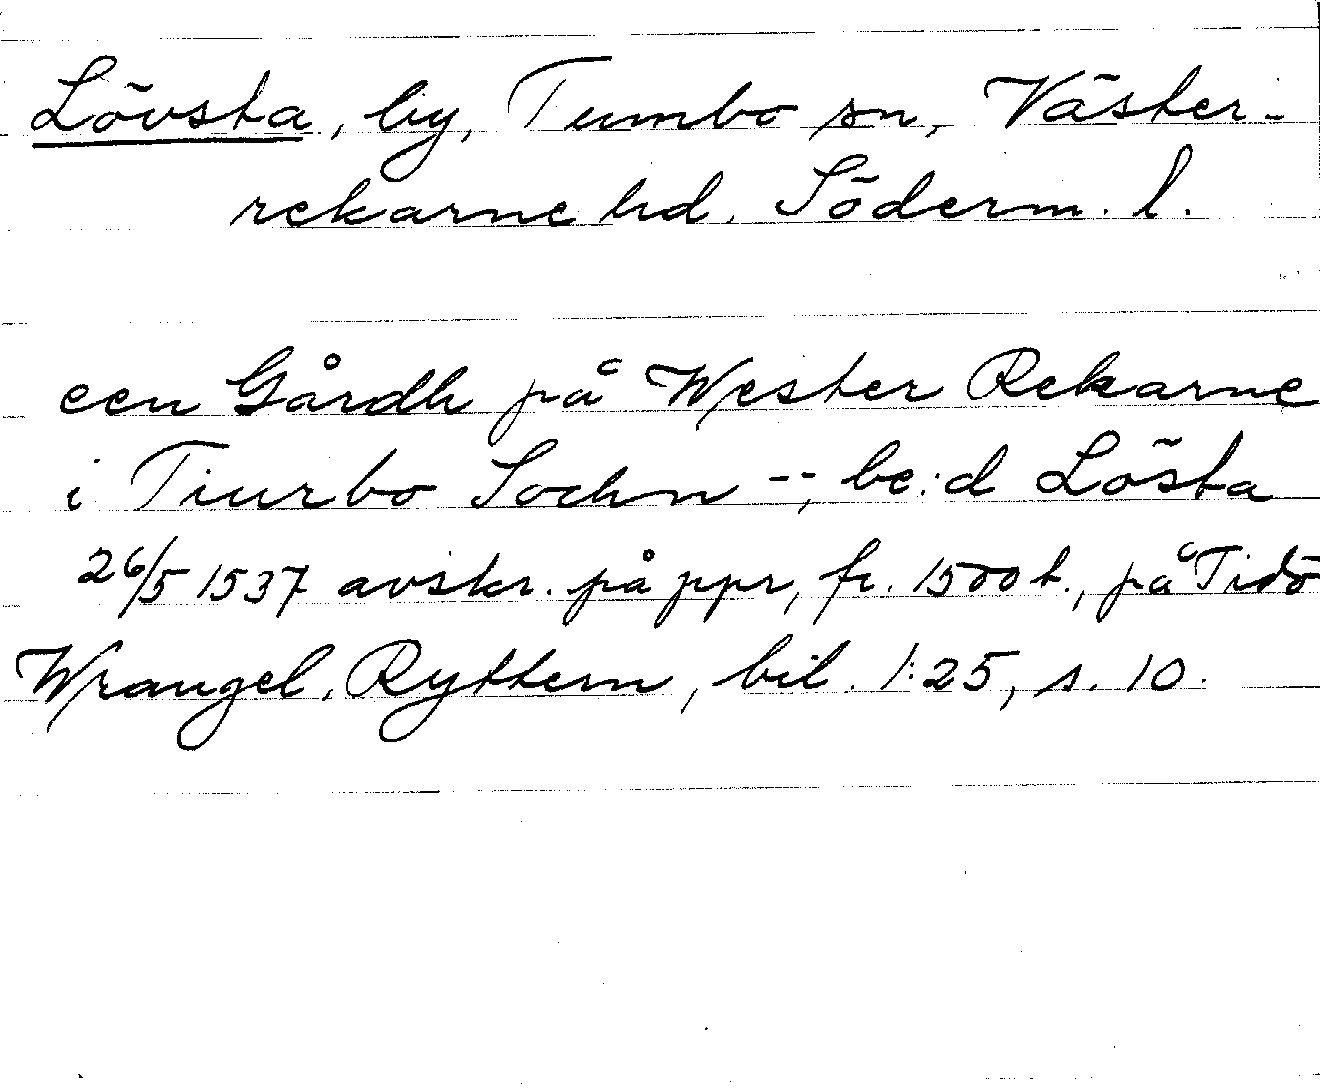 Lövsta, by, Tumbo sn, Väster-
rekarne hd. Söderm. l.
een Gårdh på Wester Rekarne
i Tiurbo Sochn --, be:d Lösta
26/5 1537 avskr. på ppr, fr. 1500 t., på Tidö
Wrangel, Ryttern, bil. 1:25, s. 10.